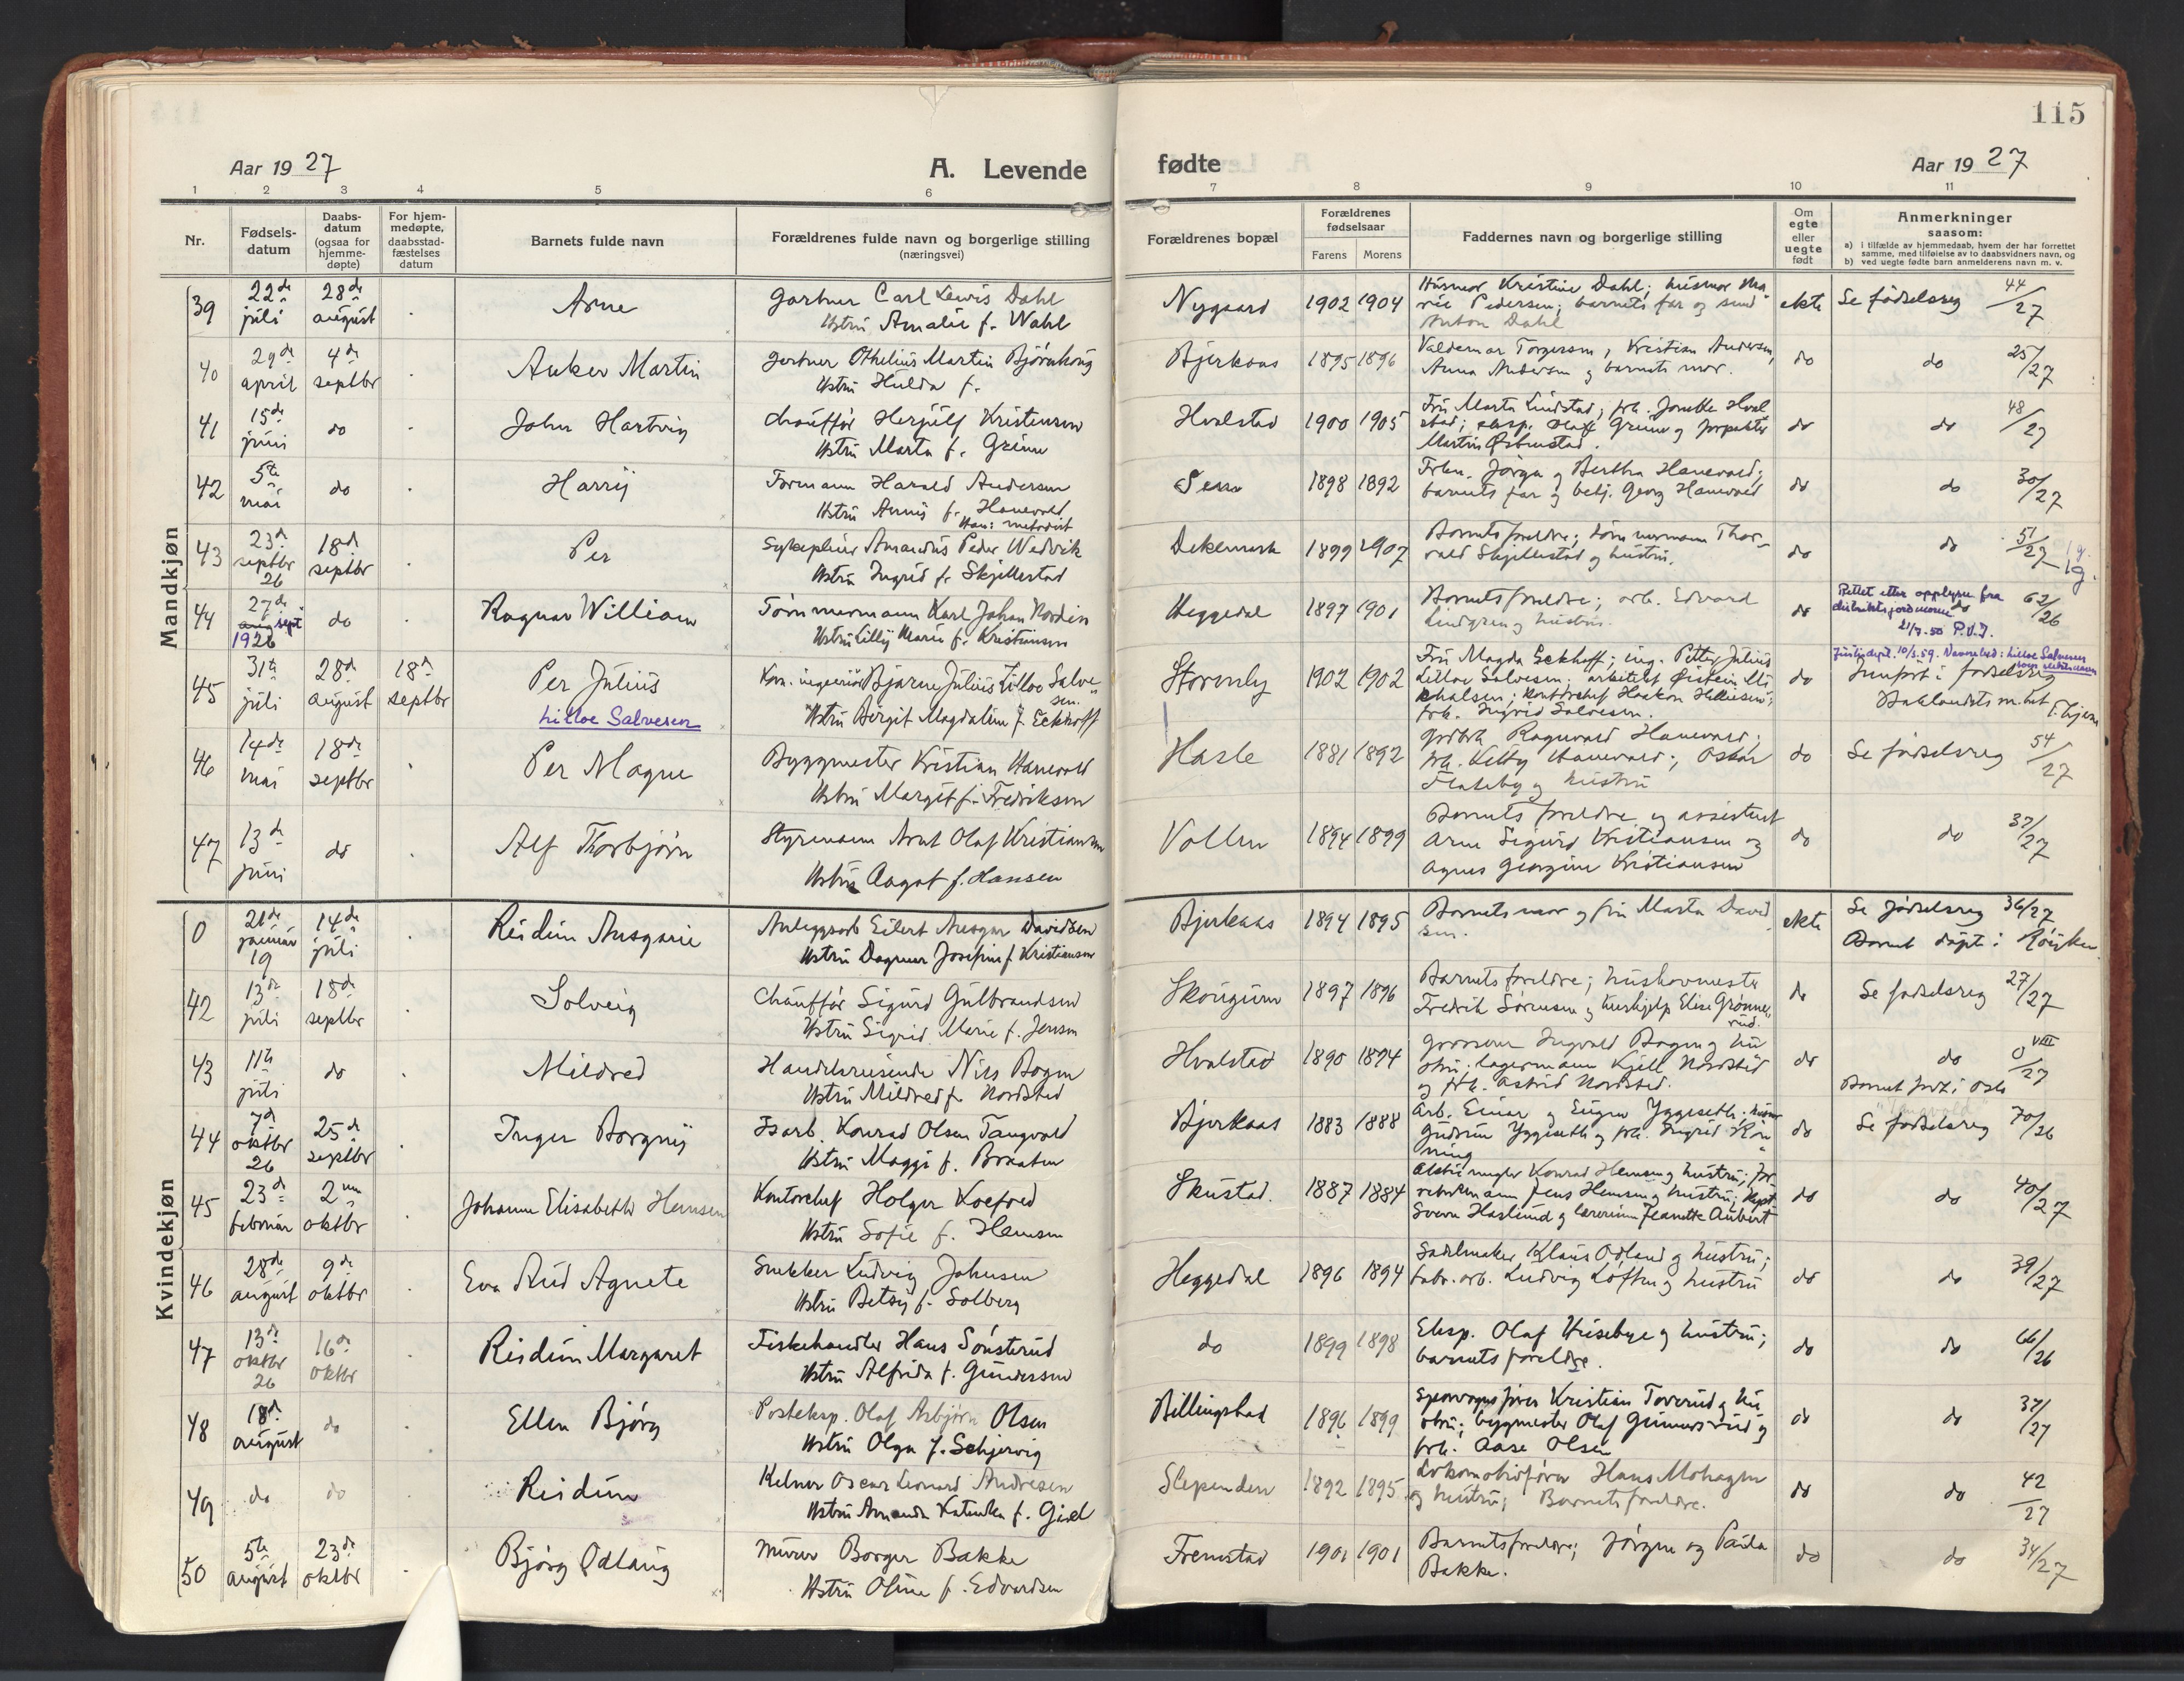 115
Aar 19 27
A. Levende
fødte
Aar 19 27
1 2 3 4 5 6 7 8 9 10 11
Nr.
Fødsels-
datum
Daabs-
datum
(ogsaa for
hjemme-
døpte)
For hjem-
medøpte,
daabsstad-
fæstelses
datum
Barnets fulde navn
Forældrenes fulde navn og borgerlige stilling
(næringsvei)
Forældrenes bopæl
Forældrenes
fødselsaar
Farens Morens
Faddernes navn og borgerlige stilling
Om
egte
eller
uegte
født
Anmerkninger
saasom:
a) i tilfælde av hjemmedaab, hvem der har forrettet
samme, med tilføielse av to daabsvidners navn, og
b) ved uegte fødte barn anmelderens navn m. v.
Mandkjøn
39 22de juli 28de august . Arne
Gartner Carl Lewis Dahl
Hstru Amalie f. Wahl
Nygaard 1902 1904
Husmor Kristine Dahl; husmor Ma-
rie Pedersen; barnets far og
Anton Dahl
ekte Se fødselsreg 44/27
40 29de april 4de septbr . Anker Martin
Gartner Othelius Martin Bjørnhaug
Hstru Hulda f.
Bjerkaas 1895 1896
Valdemar Torgersen, Kristian Andersen,
Anna Andersen og barnets mor.
do do 25/27
41 15de juni do . John Hartvig
Chauffør Herjulf Kristensen
Hstru Marta f. Grinn
Hvalstad 1900 1905
Fru Marta Lindstad; frk. Jonette Hval-
stad; eksp. Olaf og forpakter
Martin Østenstad.
do do 48/27
42 5te mai do . Harry
Formann Harald Andersen
Hstru Anny f. Hanevold
Han: metodist
Sem 1898 1892
Frkn. Jørga og Bertha Hanevold;
barnets far og betj. Georg Hanevold
do do 30/27
43 23de septbr 26 18de septbr . Per
Sykepleier Amandus Peder Wedvik
Hstru Ingrid f. Skjellestad
Dikemark 1899 1907
Barnets foreldre; tømmermann Thor-
vald Skjellestad og hustru.
do do 51/27
44 27de aug sept 1926 do . Ragnar William
Tømmermann Karl Johan Nordin
Hstru Lilly Marie f. Kristensen
Heggedal 1897 1901
Barnets foreldre; arb. Edvard
Lindgren og hustru.
do do 62/26
Rettet etter opplysn fra
distriktsjordmoren
21/7.50 P.V.J.
45 31te juli 28de august 18de septbr Per Julius
Lilloe Salvesen
Kon. ingeniør Bjarne Julius Lilloe Salve-
sen.
Hstru Birgit Magdalene f. Eckhoff
Stormly 1902 1902
Fru Magda Eckhoff; ing. Petter Julius
Lilloe Salvesen; arkitekt Øistein Mi-
chalsen; kontorchef Haakon
frk. Ingrid Salvesen.
do
Justisdept. 10/3.59. Lilloe Salvesen
Innført i fødselsreg
46 14de mai 18de septbr . Per Magne
Byggmester Kristian Hanevold
Hstru Margit f. Fredriksen
Hasle 1881 1892
Ragnvald Hanevold;
frk. Hanevold; Oskar
Flateby og hustru
do Se fødselsreg 54/27
47 13de juni do . Alf Thorbjørn
Styrmann Arnt Olaf Kristiansen
Hstru Aagot f. Hansen
Vollen 1894 1899
Barnets foreldre og assistent
Arne Sigurd Kristiansen og
Agnes Georgine Kristiansen
do do 37/27
Kvindekjøn
0 21de januar 19 14de juli . Reidun Ansgarie
Anleggsarb Eilert Ansgar Davidsen
Hstru Dagmar Josefine f. Kristiansen
Bjerkaas 1894 1895
Barnets mor og fru Marta David-
sen.
ekte Se fødselsreg 36/27
Barnet døpt i Røyken
42 13de juli 18de septbr Solveig
Chauffør Sigurd Gulbrandsen
Hstru Sigrid Marie f. Jensen
Skougum 1897 1896
Barnets foreldre; hushovmester
Fredrik Sørensen og hushjelp Elise Grønne-
rud.
do Se fødselsreg 27/27
43 11te juli do . Mildred
Handelsreisende Nils Bogen
Hstru Mildred f. Nordsted
Hvalstad 1890 1894
Grosserer Ingvald Bogen og hu-
stru; lagermann Kjell Nordsted
og frk. Astrid Nordsted.
do do 0/27 VIII
Barnet født i Oslo
44 7de oktbr 26 25de septbr . Inger Borgny
Isarb. Konrad Olsen Tangvald
Hstru Maggi f. Braaten
Bjerkaas 1883 1888
Arb. Einar og Eugen Yggeseth;
Gudrun Yggeseth og frk. Ingrid Røn-
ning
do Se fødselsreg 70/26
45 23de februar 2nen oktbr Johanne Elisabeth Hemsen
Kontorchef Holger Koefoed
Hstru Sofie f. Hemsen
Skustad. 1887 1884
Konrad Hemsen og hustru;
Jens Hemsen og hustru; kapt.
Sverre Haslund og lærerinne Jeanette Aubert
do do 40/27
46 28de august 9de oktbr . Eva Aud Agnete
Snekker Ludvig Johnsen
Hstru Betsy f. Solberg
Heggedal 1896 1894
Sadelmaker Klaus Odland og hustru;
fabr. arb. Ludvig Loftin og hustru
do do 39/27
47 13de oktbr 26 16de oktbr . Reidun Margaret
Fiskehandler Hans Sønsterud
Hstru Alfrida f. Gundersen
do 1899 1898
Eksp. Olaf Huseby og hustru;
barnets foreldre.
do do 66/26
48 18de august do . Ellen Bjørg
Posteksp. Olaf Asbjørn Olsen
Hstru Olga f. Schjervig
Billingstad 1896 1899
Sporvognsfører Kristian Toverud og hu-
stru; byggmester Olaf Gunnersrud og
frk. Aase Olsen
do do 37/27
49 do do . Reidun
Kelner Oscar Leonard Andresen
Hstru Amanda Katinka f.
Slependen 1892 1895
Lokomotivfører Hans Mohagen
og hustru; Barnets foreldre.
do do 42/27
50 5te august 23de oktbr . Bjørg Odlaug
Murer Borger Bakke
Hstru Oline f. Edvardsen
Fremstad 1901 1901
Barnets foreldre; Jørgen og Paula
Bakke.
do do 34/27